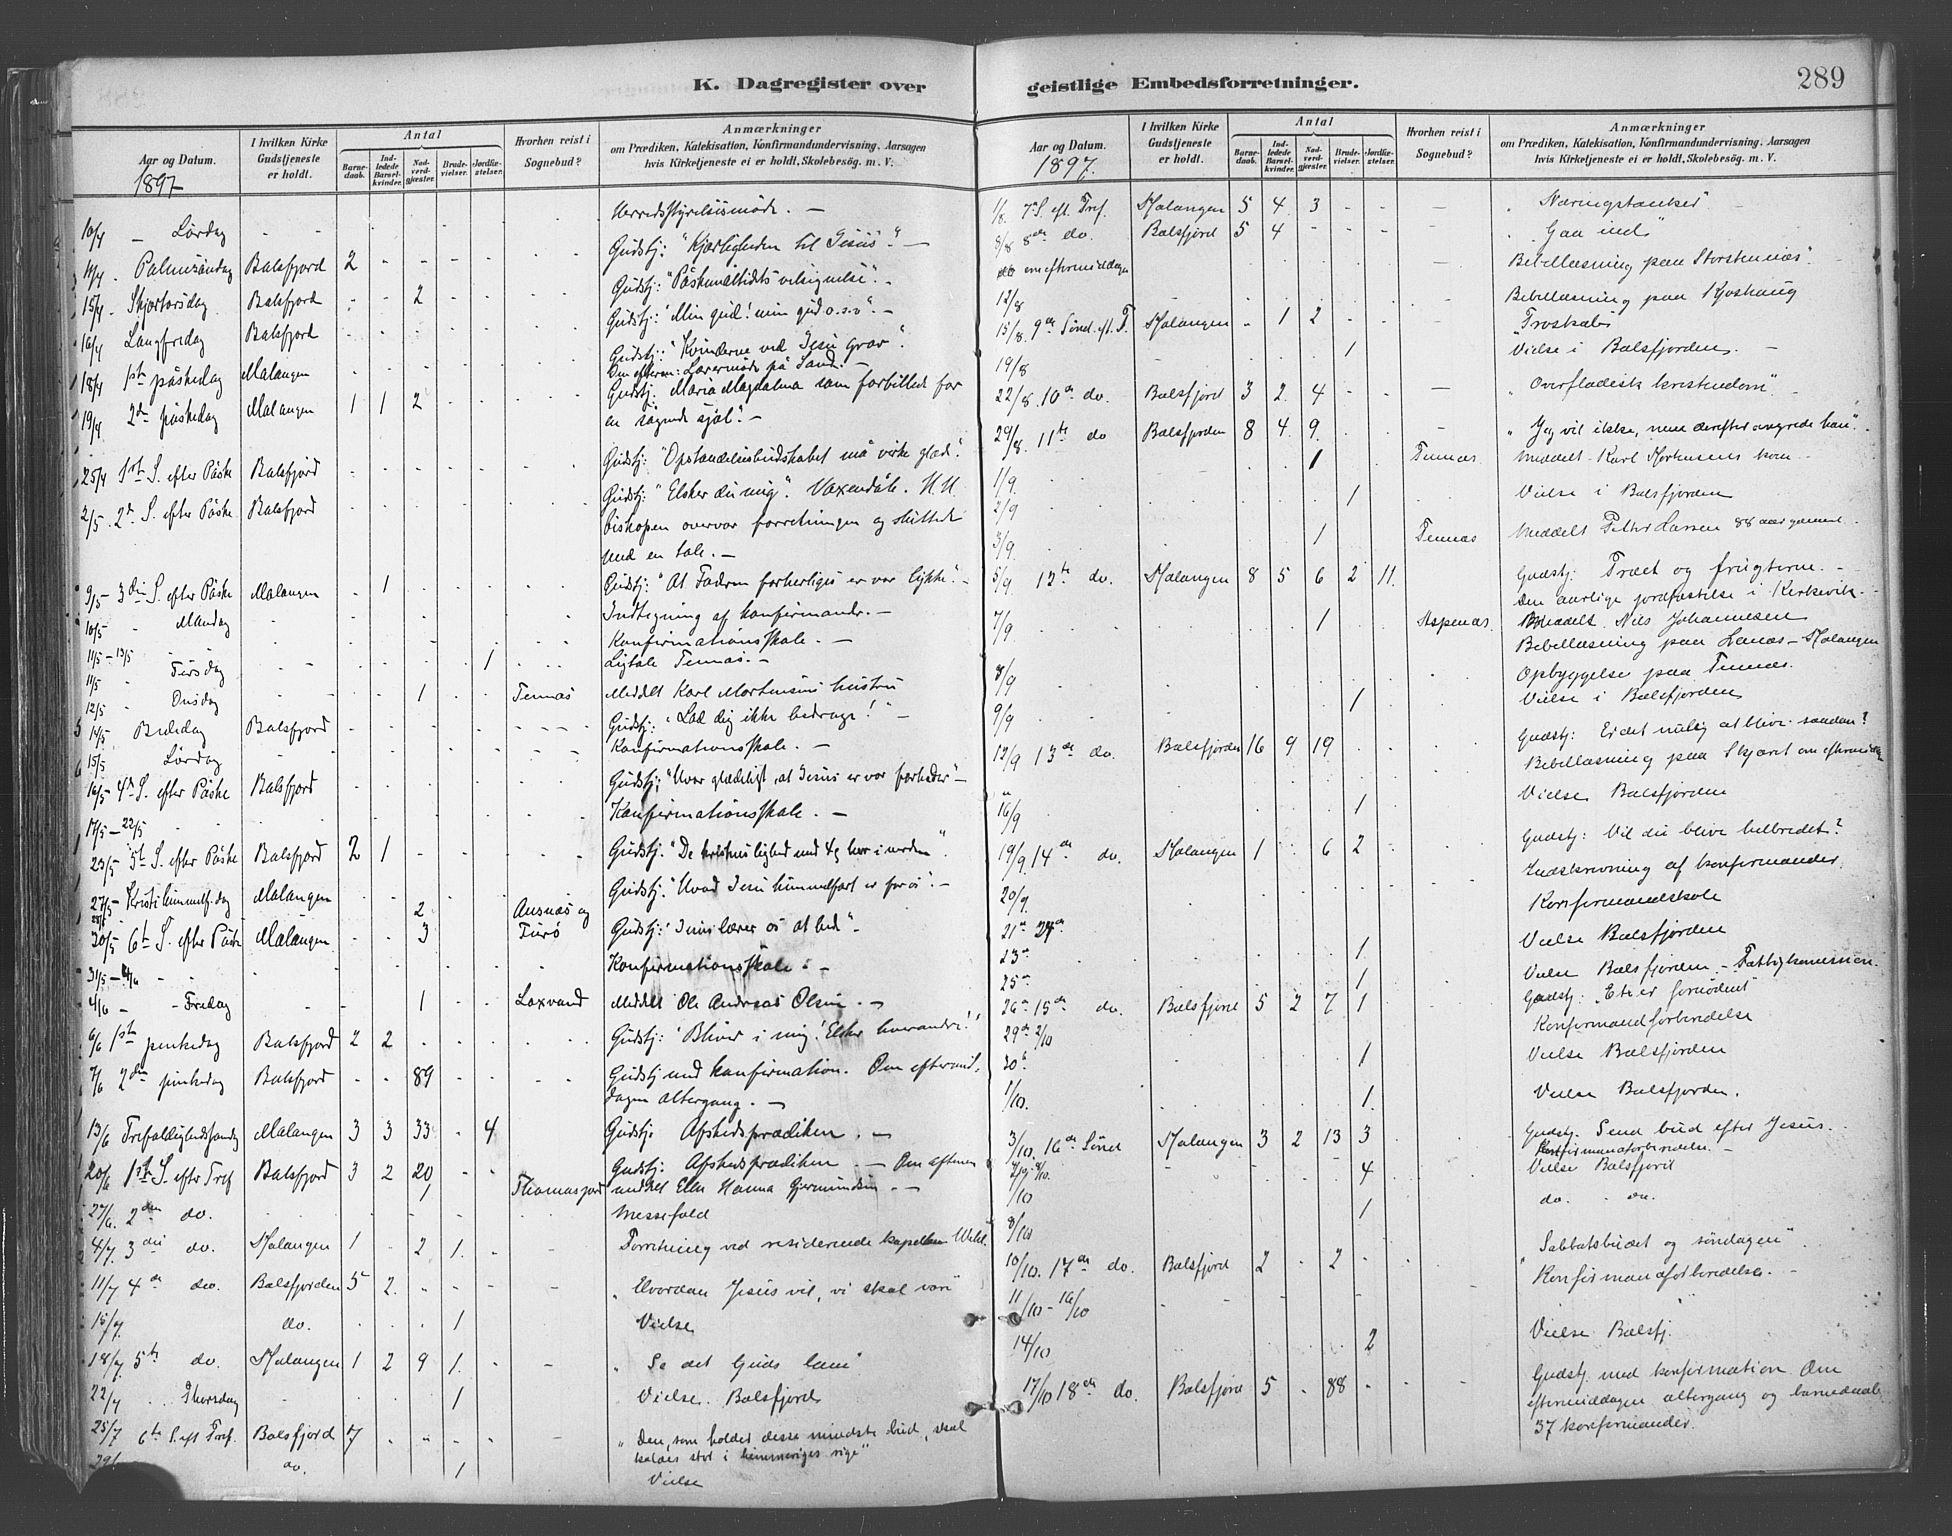 K. Dagregister over
Aar og Datum.
1897
I hvilken Kirke Gudstjeneste er holdt.
Antal
Barnedaab.
Indledede Barselkvinder.
Nadverdgjæster.
Brudevielser.
Jordfæstelser.
Hvorhen reist i Sognebud?
Anmærkninger
om Prædiken, Katekisation, Konfirmandundervisning. Aarsagen
hvis Kirketjeneste ei er holdt, Skolebesøg. m. V.
10/4 - Lørdag - - Herredsstyrelsismøde. -
11/4. Palmesøndag Balsfjord 2 - - - - Gudstj: "Kjærligheden til Jesus". -
15/4 Skjærtorsdag Balsfjord - - 2 - - Gudstj: "Påskemåltidets velsignelse". -
16/4 Langfredag Balsfjord Gudstj: "Min gud! min gud o.s.v". -
18/4 1st påskedag Malangen Gudstj: "Kvinderne ved Jesu Grav".
Om efterm: Lærermøde på Sand. -
19/4 2den påskedag Malangen 1 1 2 Gudstj: Maria Magdalena som forbillede for
en søgende sjæl". -
25/4 1st S. efter Påske Balsfjord Gudstj: "Opstandelsesbudskabet må virke glæd".
2/5. 2d S. efter Påske Balsfjord Gudstj: "Elsker du mig". Voxendåb. H. H.
biskopen overvar forretningen og sluttede
med en tale. -
9/5 - 3die S. efter Påske Malangen - 1 Gudstj: "At Faderen forherliges er vor lykke". -
10/5 " Mandag Indtegning af konfirmander. -
11/5 - 13/5 Konfirmationsskole. -
11/5 " Tirsdag 1 Ligtale Tennæs. -
12/5 " Onsdag 1 Tennæs Meddelt Karl Mortensens hustru
14/5 Bededag Balsfjord Gudstj: "Lad dig ikke bedrage!" -
15/5 Lørdag Konfirmationsskole. -
16/5 - 4d S. efter Påske Balsfjord Gudstj: "Hvor glædeligt, at Jesus er vor forbeder" -
17/5 - 22/5 Konfirmationsskole. -
23/5 - 5t S. efter Påske Balsfjord 2 1 Gudstj.
27/5 - Kristi himmelf. dag Malangen Gudstj: "Hvad Jesu himmelfart er for os". -
2 Ausnæs og
30/5 6t S. efter Påske Malangen - - 3 Turø Gudstj: "Jesus lærer os at bede" -
31/5 - 4/6 Konfirmationsskole. -
4/6 - - Fredag 1 Laxvand Meddelt Ole Andreas Olsen. -
6/6 1st pinsedag Balsfjord 2 2 Gudstj: "Bliver i mig! Elsker hverandre!"
7/6 2den pinsedag Balsfjord - - 89 Gudstj med konfirmation. Om eftermid-
dagen altergang. -
13/6 Trefoldighedssøndag Malangen 3 3 33 - 4 Gudstj: Afskedsprædiken. -
20/6 1st S. efter Tref Balsfjord 3 2 20 Gudstj: Afskedsprædiken. - Om aftenen
1 Thomasjord meddelt Ellen Hanna Gjermundsen. -
27/6. 2den do. Messefald
4/7. 3die do. Malangen 1 . 2 1. Forretning ved residerende kapellan
11/7 4de do. Balsfjorden 5 2. "Hvordan Jesus vil, vi skal være"
15/7. do. 1 Vielse
18/7. 5te do. Malangen 1 2 9 1. "Se det Guds lam"
22/7 . . Thorsdag 1 Vielse. Balsfjord
25/7 6te S. eft Tref. Balsfjord 7 "Den, som holder disse mindste bud, skal
kaldes stor i himmeriges rige"
29/ do. 1 Vielse
geistlige Embedsforretninger.
289
Aar og Datum.
1897.
I hvilken Kirke Gudstjeneste er holdt.
Antal
Barnedaab.
Indledede Barselkvinder.
Nadverdgjæster.
Brudevielser.
Jordfæstelser.
Hvorhen reist i Sognebud?
Anmærkninger
om Prædiken, Katekisation, Konfirmandundervisning. Aarsagen
hvis Kirketjeneste ei er holdt, Skolebesøg. m. V.
1/8. 7de S. eft. Tref. Malangen 5 4 3 "Næringstanker"
8/8 8de do. Balsfjord 5 4 "Gaa ind"
do om eftermiddagen Bibellæsning paa Storstennæs. -
12/8 Bibellæsning paa Kjoshaug
15/8. 9de Sønd. eft. T. Malangen - 1 2 "Troskab"
19/8 1 Vielse i Balsfjorden. -
22/8. 10de do. Balsfjord 3 2. 4 "Overfladisk kristendom" -
29/8. 11te do Balsfjorden 8 4. 9. "Jeg vil ikke, men derefter angrede han".
1/9. 1 Tennæs. Meddelt Karl Mortensens kone -
2/9 1 Vielse i Balsfjorden
3/9. 1 Tennæs Meddelt Petter Larsen 88 aar gammel.
5/9 12te do. Malangen 8 5 6 2 11. Gudstj: Træet og frugterne. -
Den aarlige jordfæstelse i Kirkevik. -
7/9 1 Aspenæs. Meddelt Nils Johannesen
Bibellæsning paa Lenæs - Malangen
8/9 Opbyggelse paa Tennæs.
9/9 1 Vielse i Balsfjorden
12/9 13de do. Balsfjorden 16 9 19 Gudstj: Er det nulig at blive saadan?
" Bibellæsning paa Skjæret om eftermiddag
16/9 1 Vielse Balsfjorden
19/9. 14de do. Malangen 1 6 2 Gudstj: Vil du blive helbredet?
20/9. Indskrivning af konfirmander.
21de 24de Konfirmandskole
23de 1 Vielse Balsfjorden
25de 1 Vielse Balsfjorden -
26de 15de do. Balsfjord 5 2 7 1 Gudstj: "Et er fornødent"
29de 2/10 Konfirmandforberedelse
30te 1 Vielse Balsfjorden
1/10. 1. Vielse Balsfjorden.
3/10. 16de Sønd Malangen 3 2 13 3 Gudstj. Send bud efter Jesus.
Konfirmandforberedelse. -
4 Vielse Balsfjord
/10 do. do.
8/10 1
10/10. 17de do. Balsfjord 2 . 2 "Sabbatsbudet og søndagen".
11/10 - 16/10 Konfirmandforberedelse. -
14/10 2 Vielse Balsfj.
17/10 18de do. Balsfjord 5 . 88 Gudstj. med konfirmation Om
eftermiddagen altergang og barnedaab
37 konfirmander.